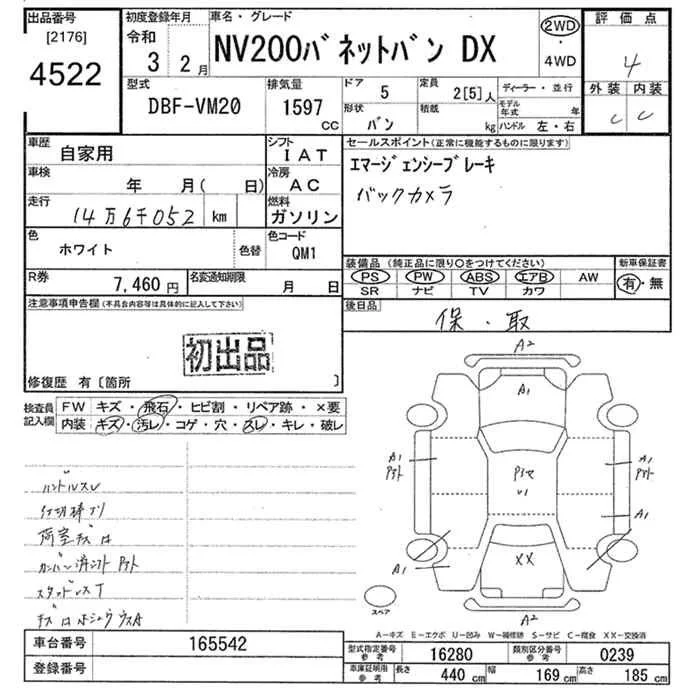 出品番号
[2176]
4522
初度登録年月
令和
3 2月
車名・グレード
NV200バネットバン DX
2WD
・
4WD
評価点
4
外装 内装
C C
型式
DBF-VM20
排気量
1597
CC
ドア
5
形状
バン
定員
2[5]人
積載
kg
ディーラー・並行
モデル年式 年
ハンドル 左・右
車歴
自家用
シフト
IAT
車検
年 月( 日)
冷房
AC
走行
14万6千052 km
燃料
ガソリン
色
ホワイト
色替
色コード
QM1
R券
7,460円
名変通知期限
月 日
セールスポイント(正常に機能するものに限ります)
エマージェンシーブレーキ
バックカメラ
装備品(純正品に限り○をつけてください)
PS PW ABS エアB AW
SR ナビ TV カワ
新車保証書
有・無
後日品
保・取
注意事項申告欄(不具合内容等は具体的に記入して下さい)
初出品
修復歴 有〔箇所 〕
検査員
記入欄
FW キズ・飛石・ヒビ割・リペア跡・×要
内装 キズ・汚レ・コゲ・穴・スレ・キレ・破レ
ハンドルスレ
荷室キズ
A2
A1
A1
A1
A1
A1
XX
A2
スペア
A-キズ E-エクボ U-凹み W-補修跡 S-サビ C-腐食 XX-交換済
車台番号
165542
登録番号
型式指定番号
参考
16280
類別区分番号
参考
0239
車庫証明用
参考
長さ 440cm 幅 169cm 高さ 185cm